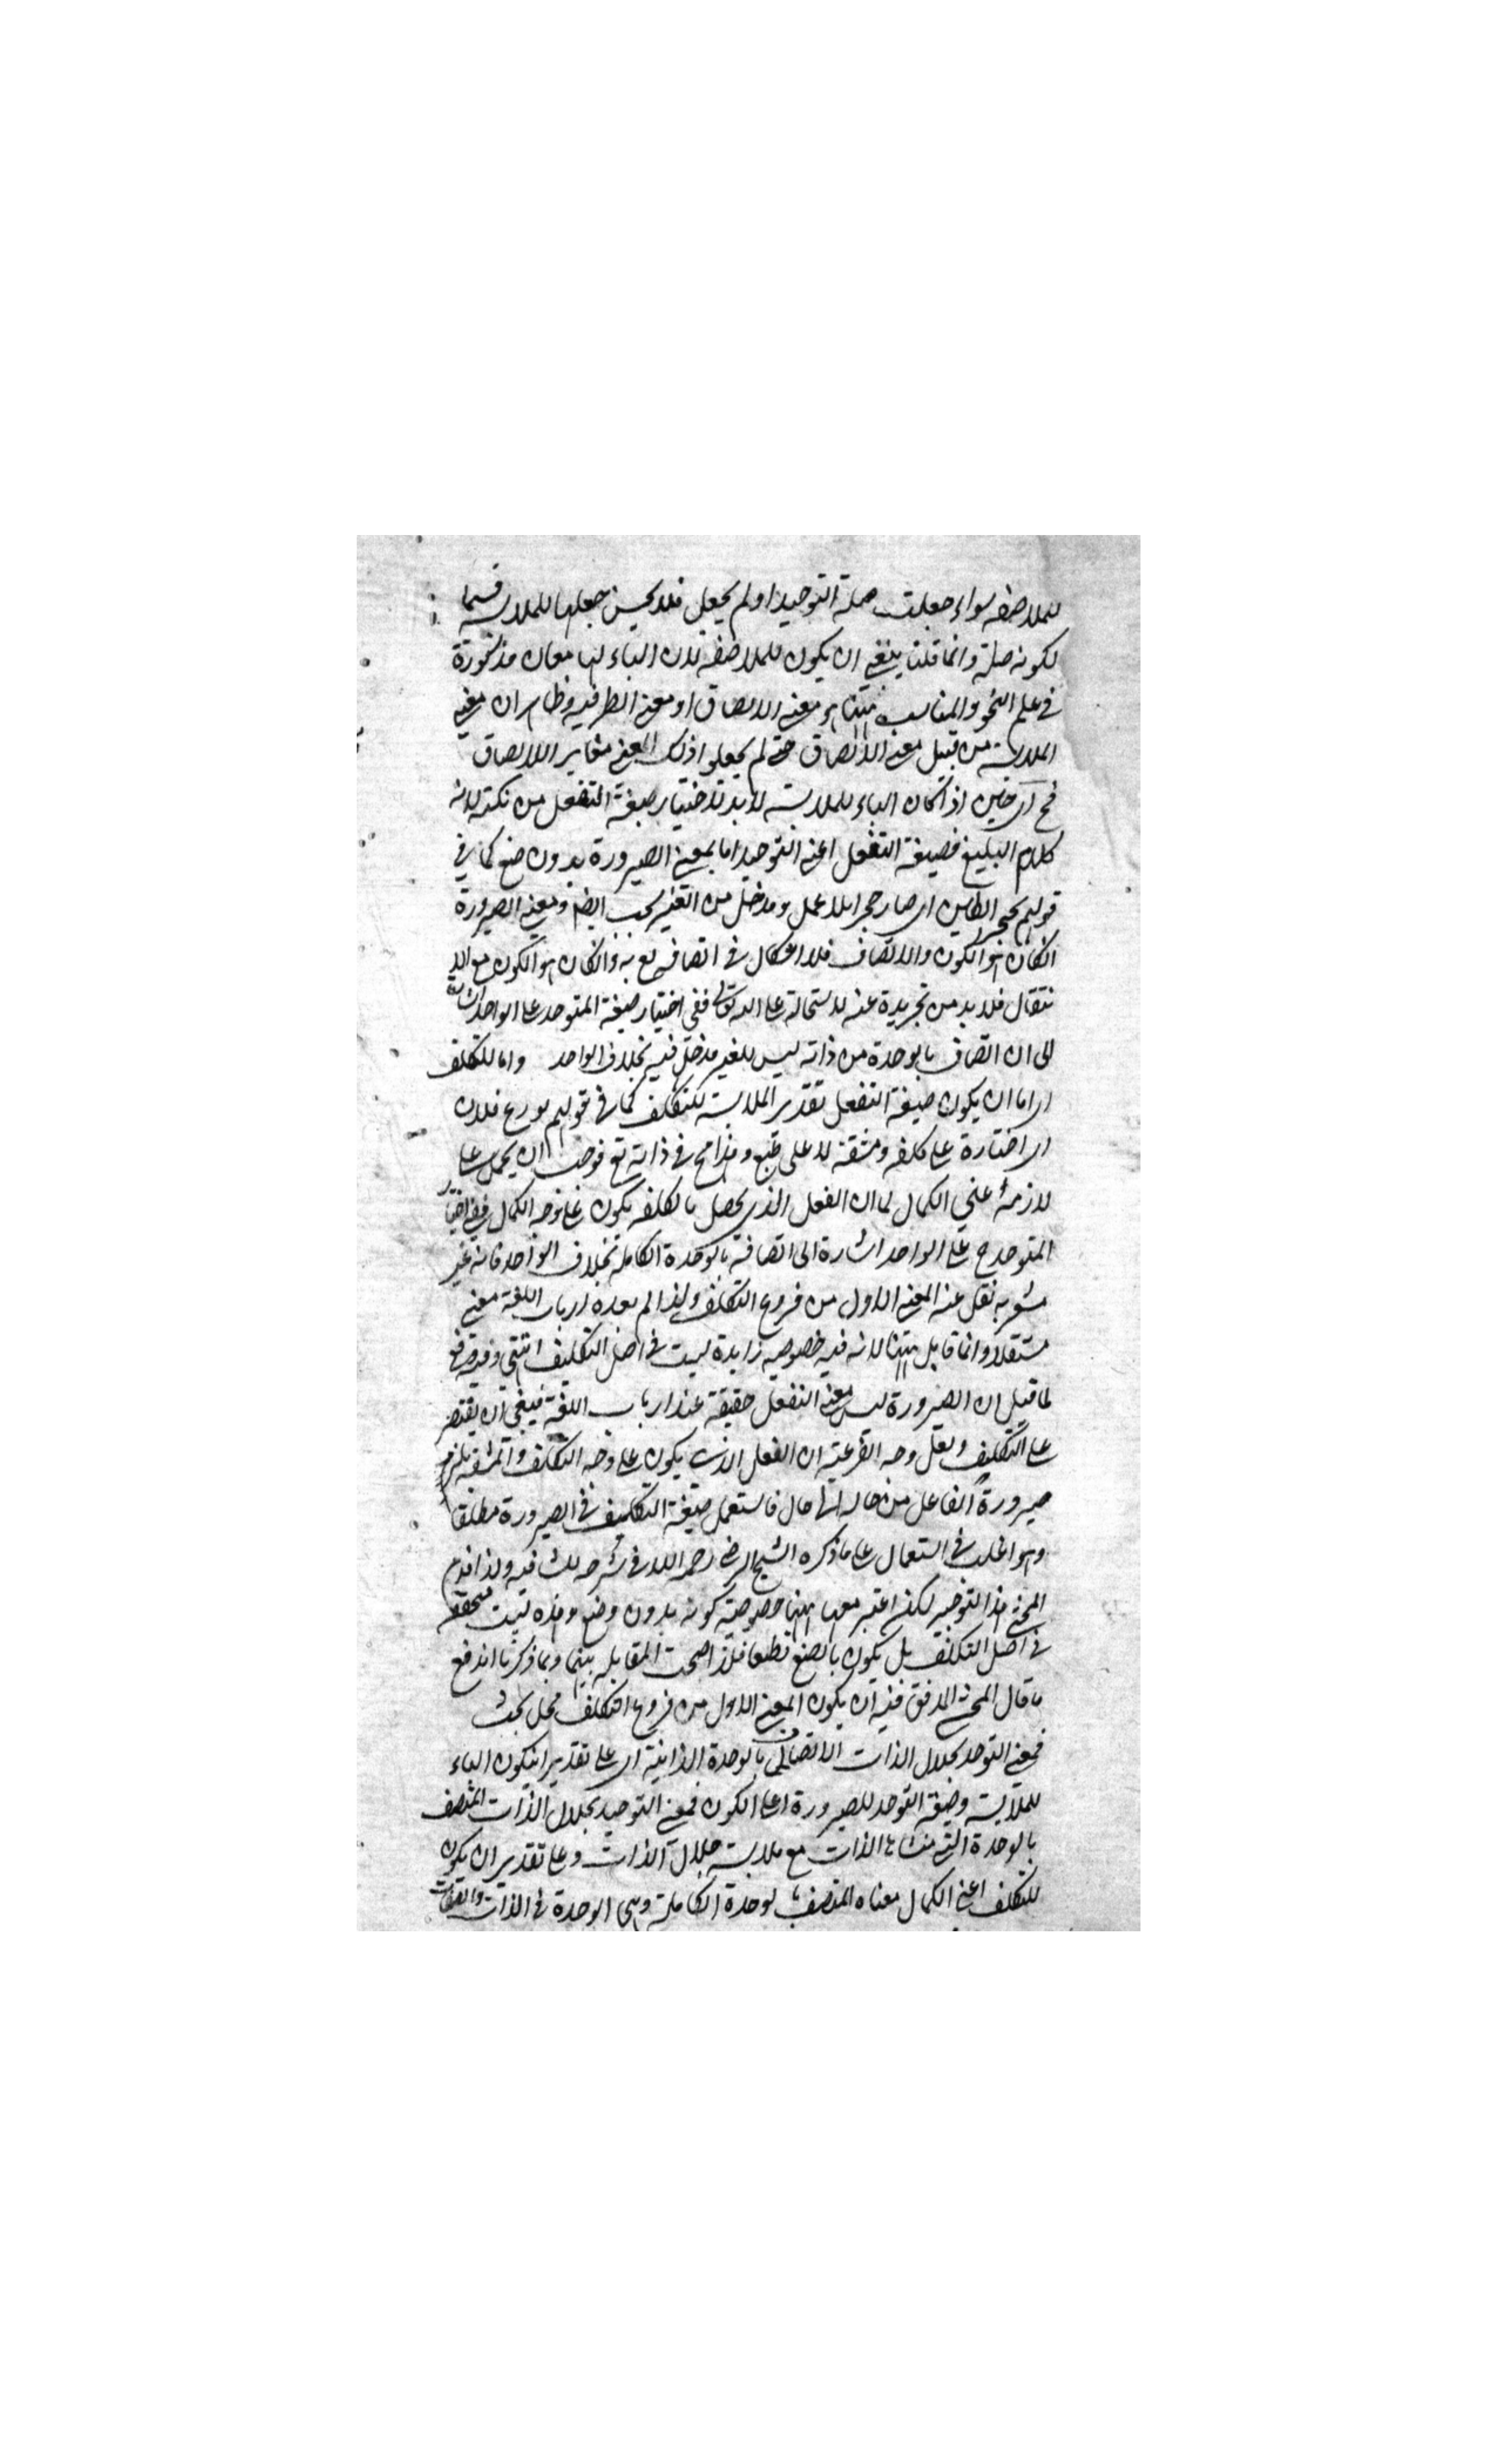 للملاصقة سواء جعلت صلة التوحيد او لم يجعل فلا يحسن جعلها للملابسة قسيما
لكونه صلة وانما قلنا ينبغي ان يكون للملاصقة لان الباء لها معان مذكورة
في علم النحو والمناسب ههنا هو معنى الالصاق او معنى الظرفية وظاهر ان معنى
الملابسة من قبيل معنى الالصاق حتى لم يجعلوا ذلك المعنى مغايرا للالصاق
فح اى حين اذ كان الباء للملابسة لا بد لاختيار صيغة التفعل من نكتة لانه
كلام البليغ فصيغة التفعل اعنى التوحيد اما بمعنى الصيرورة بدون صنع كما في
قولهم تحجر الطين اى صار حجرا بلا عمل ومدخل من الغير بحسب الظ ومعنى الصيرورة
انكان هو الكون والاتصاف فلا اشكال في اتصافه تع به وانكان هو الكون مع الا
نتقال فلا بد من تجريدة عنه لاستحالته على الله تعالى ففي اختيار صيغة المتوحد على الواحد اشارة
الى ان اتصافه بالوحدة من ذاته ليس للغير مدخل فيه بخلاف الواحد واما للتكلف
اى اما ان يكون صيغة التفعل تقدير الملابسة للتكلف كما في قولهم تورع فلان
اى اختارة على كلفة ومشقة لا على طبع وهذا مح في ذاته تع فوجب ان يحمل على
لازمه اعنى الكمال لما ان الفعل الذي يحصل بالكلفة يكون على وجه الكمال ففي اختيار
المتوحد ح على الواحد اشارة الى اتصافه بالوحدة الكاملة بخلاف الواحد فانه غير
مشعر به نقل عنه المعنى الاول من فروع التكلف ولذا لم يعده ارباب اللغة معنى
مستقلا وانما قابل ههنا لانه فيه خصوصية زايدة ليست في اصل التكليف انتهى وفيه دفع
لما قيل ان الصيرورة ليس معنى التفعل حقيقة عند ارباب اللغة فينبغي ان يقتصر
على التكليف ولعل وجه الفرعية ان الفعل الذي يكون على وجه التكلف والمشقة يلزم
صيرورة الفاعل من حال الى حال فاستعمل صيغة التكليف في الصيرورة مطلقا
وهو اغلب في استعمال على ما ذكره الشيخ الرضى رحمه الله في شرحه للشافية ولذا قدم
المحشى هذا التوجيه لكن اعتبر معها ههنا خصوصية كونه بدون وضع وهذه ليست متحققة
في اصل التكلف بل يكون بالصنع قطعا فلذا صحت المقابلة بينهما وبما ذكرنا اندفع
ما قال المحشى المدقق فيه ان يكون المعنى الاول من فروع التكلف محل بحث
فمعنى التوحد بجلال الذات الاتصاف بالوحدة الذاتية اى على تقدير ان يكون الباء
للملابسة وصيغة التوحد للصيرورة اعنى الكون فمعنى التوحيد بجلال الذات المتصف
بالوحدة التى منشاها الذات مع ملابسة جلال الذات وعلى تقدير ان يكون
للتكلف اعنى الكمال معناه المتصف بالوحدة الكاملة وهى الوحدة في الذات والصفات